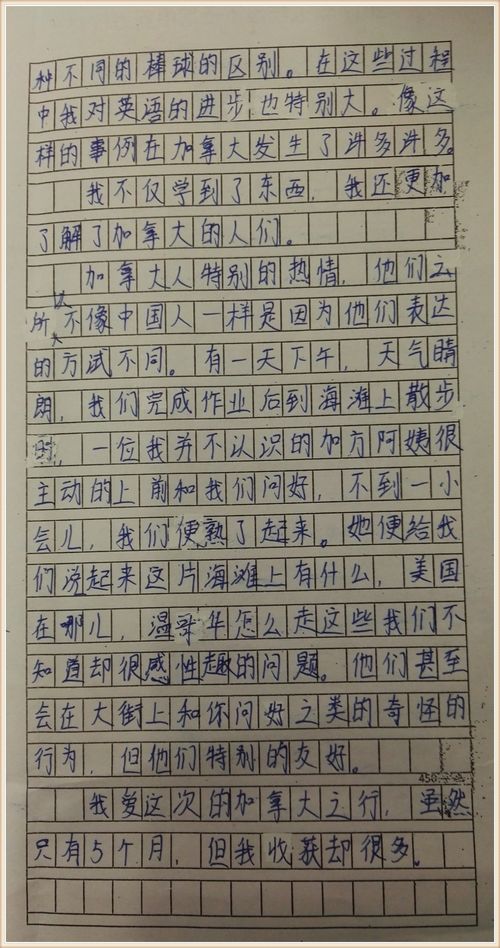 种不同的棒球的区别。在这些过程
中我对英语的进步也特别大。像这
样的事例在加拿大发生了许多许多。
我不仅学到了东西，我还更加
了解了加拿大的人们。
加拿大人特别的热情，他们之
所以不像中国人一样是因为他们表达
的方试不同。有一天下午，天气晴
朗，我们完成作业后到海滩上散步
时，一位我并不认识的加方阿姨很
主动的上前和我们问好，不到一小
会儿，我们便熟了起来。她便给我
们说起来这片海滩上有什么，美国
在哪儿，温哥华怎么走这些我们不
知道却很感性趣的问题。他们甚至
会在大街上和你问好之类的奇怪的
行为，但他们特别的友好。
450
我爱这次的加拿大之行，虽然
只有5个月，但我收获却很多。